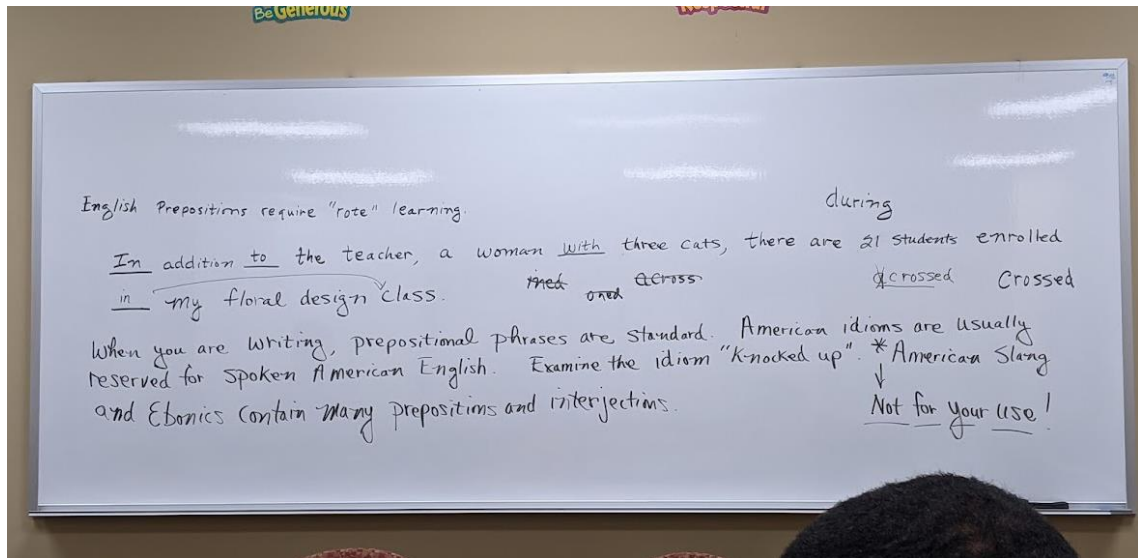 Be Generous
English Prepositions require "rote" learning.
during
In addition to the teacher, a woman with three cats, there are 21 students enrolled
in my floral design class.
oned across
acrossed Crossed
When you are writing, prepositional phrases are standard. American idioms are usually
reserved for spoken American English. Examine the idiom "Knocked up". * American Slang
and Ebonics contain many prepositions and interjections.
Not for your use!